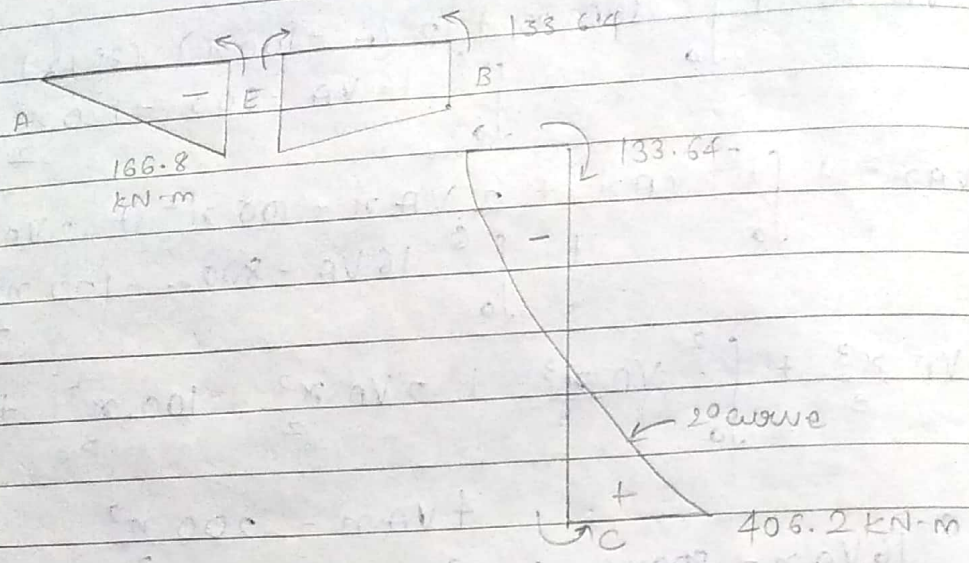 133.64
A
−
E
B
166.8
kN-m
133.64
−
2° curve
+
C
406.2 KN-m